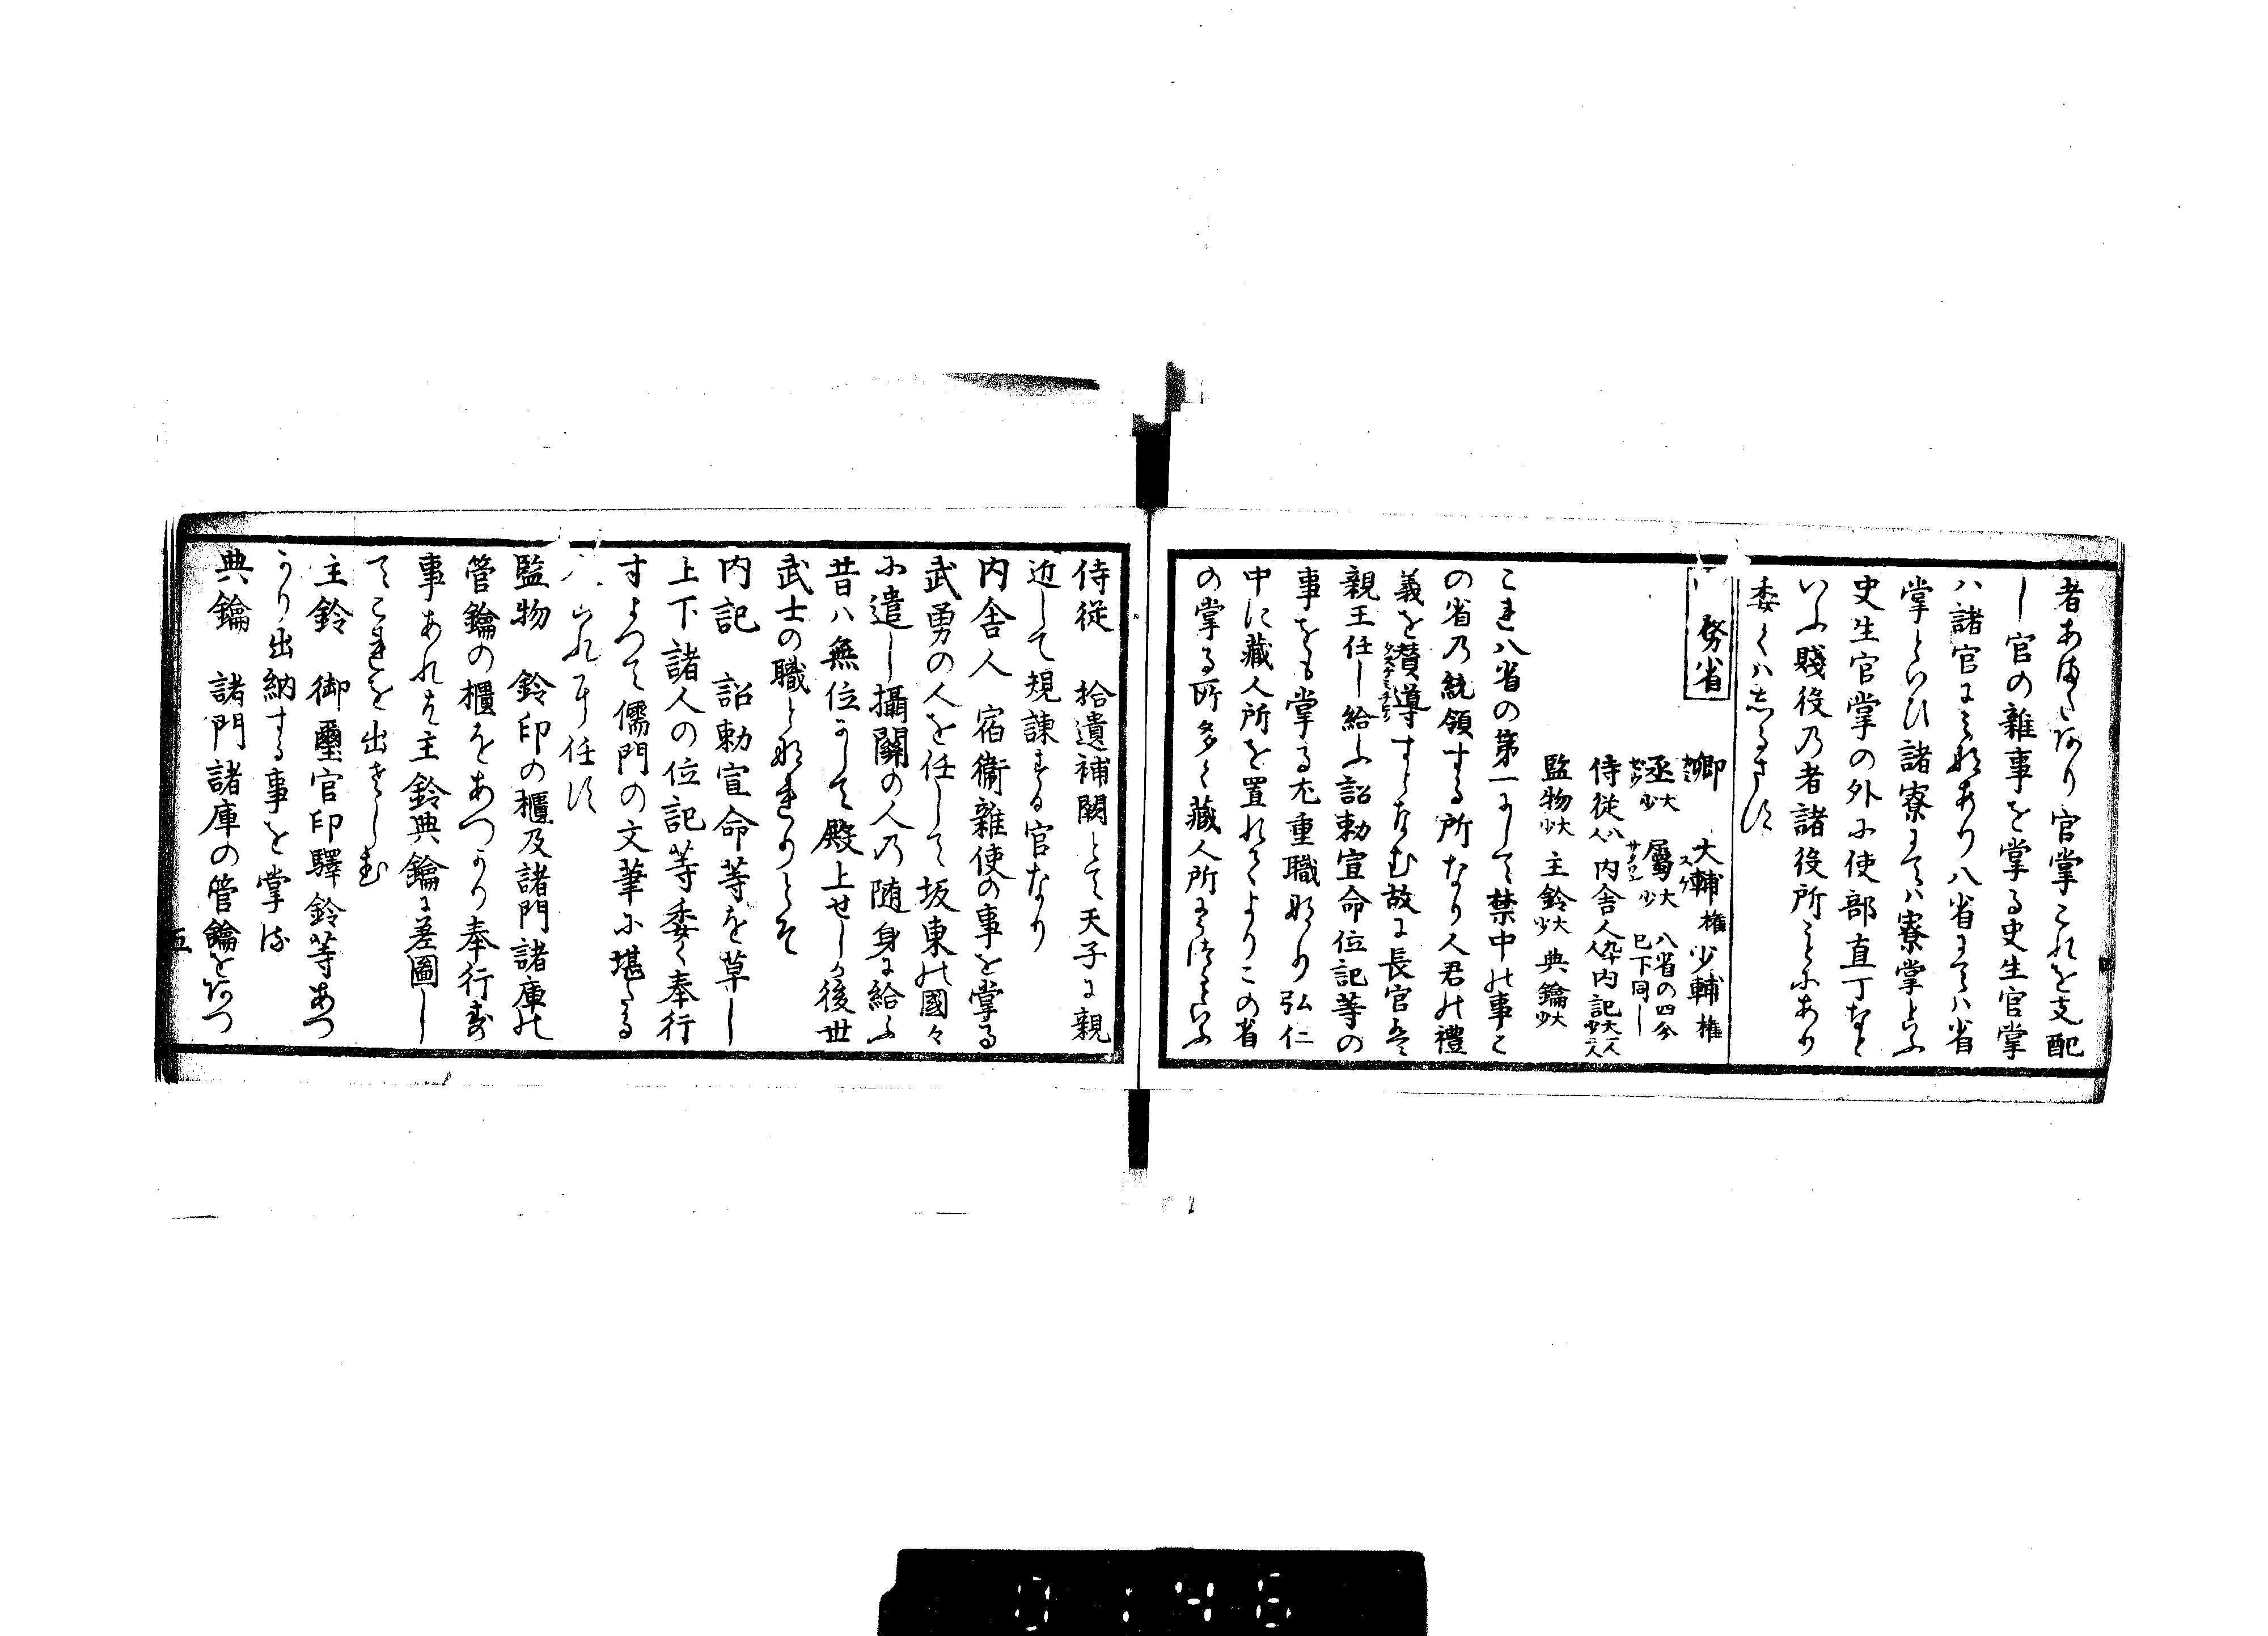 者あまたあり官掌これを支配
し官の雜事を掌る史生官掌
ハ諸官にみなあり八省にてハ省
掌といひ諸寮にてハ寮掌といふ
史生官掌の外に使部直丁など
いふ賤役乃者諸役所ことにあり
委くハしるさす
務省
卿 大輔 權 少輔 權
スケ
丞 大少 屬 大少 八省の四分已下同し
サクワン
侍從 八人 内舎人 内記
監物 大少 主鈴 大少 典鑰 大少
これ八省の第一にして禁中の事こ
の省乃統領する所なり人君の禮
義を賛導すとなむ故に長官には
親王任し給ふ詔勅宣命位記等の
事をも掌る尤重職なり弘仁
中に藏人所を置れてよりこの省
の掌る所多く藏人所にうつるといふ
侍從 拾遺補闕とて天子に親
近して規諫する官なり
内舎人 宿衞雜使の事を掌る
武勇の人を任して坂東の國々
に遣し攝關の人乃随身に給ふ
昔ハ無位にして殿上せしか後世
武士の職となれりとそ
内記 詔勅宣命等を草し
上下諸人の位記等委く奉行
すよつて儒門の文筆に堪たる
これに任す
監物 鈴印の櫃及諸門諸庫の
管鑰の櫃をあつかり奉行す
事あれは主鈴典鑰に差圖し
てこれを出さしむ
主鈴 御璽官印驛鈴等あつ
かり出納する事を掌る
典鑰 諸門諸庫の管鑰をあつ
五
0146